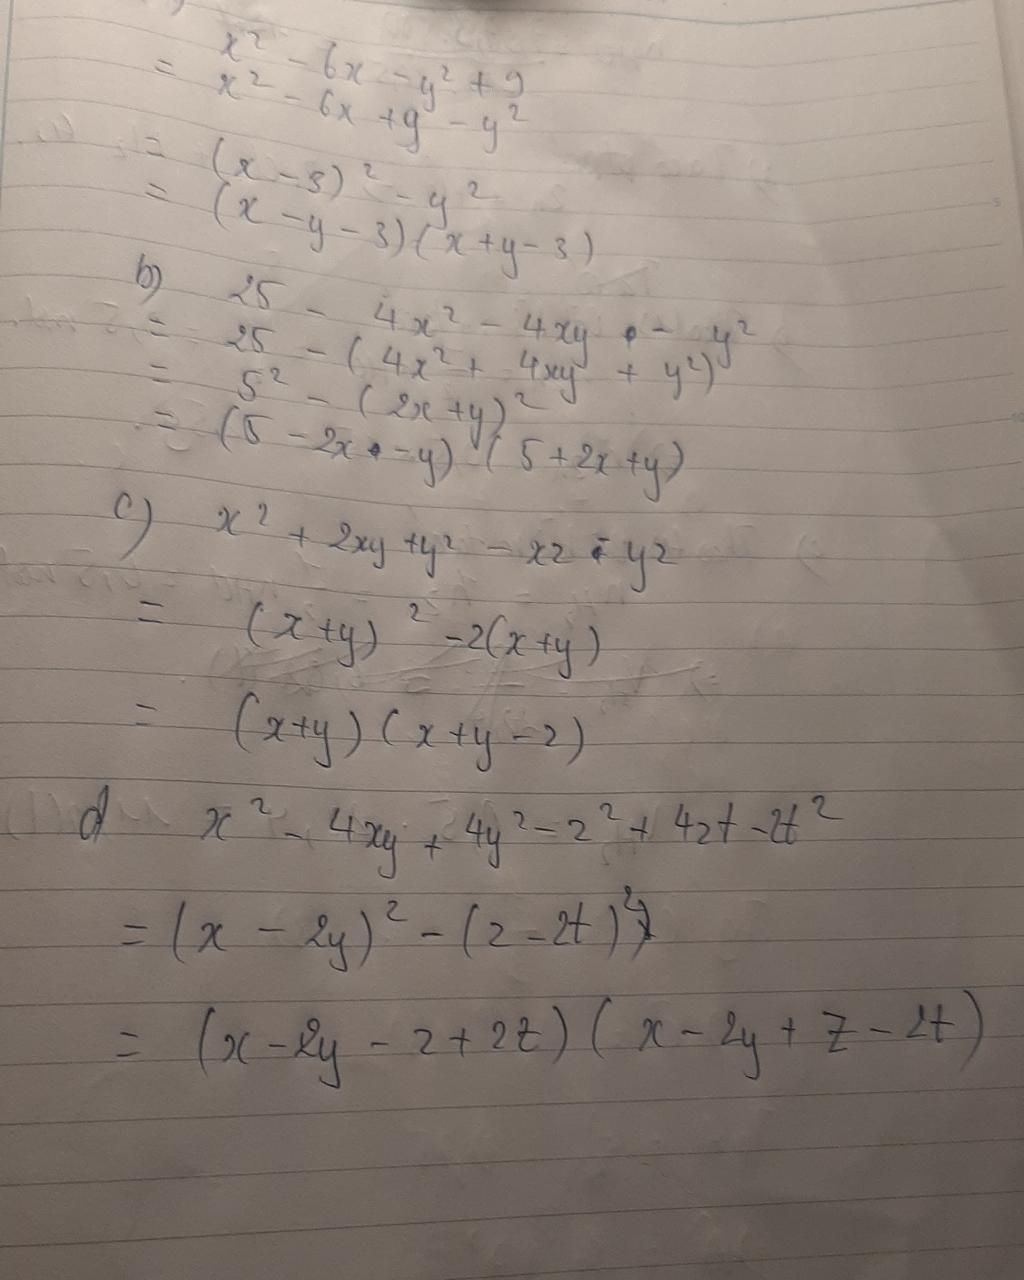 x² - 6x - y² + 9
= x² - 6x + 9 - y²
= (x - 3)² - y²
= (x - y - 3)(x + y - 3)
b) 25 - 4x² - 4xy - y²
= 25 - (4x² + 4xy + y²)
= 5² - (2x + y)²
= (5 - 2x - y)(5 + 2x + y)
c) x² + 2xy + y² - xz - yz
= (x + y)² - z(x + y)
= (x + y)(x + y - z)
d x² - 4xy + 4y² - z² + 4zt - 2t²
= (x - 2y)² - (z - 2t)²
= (x - 2y - z + 2t)(x - 2y + z - 2t)